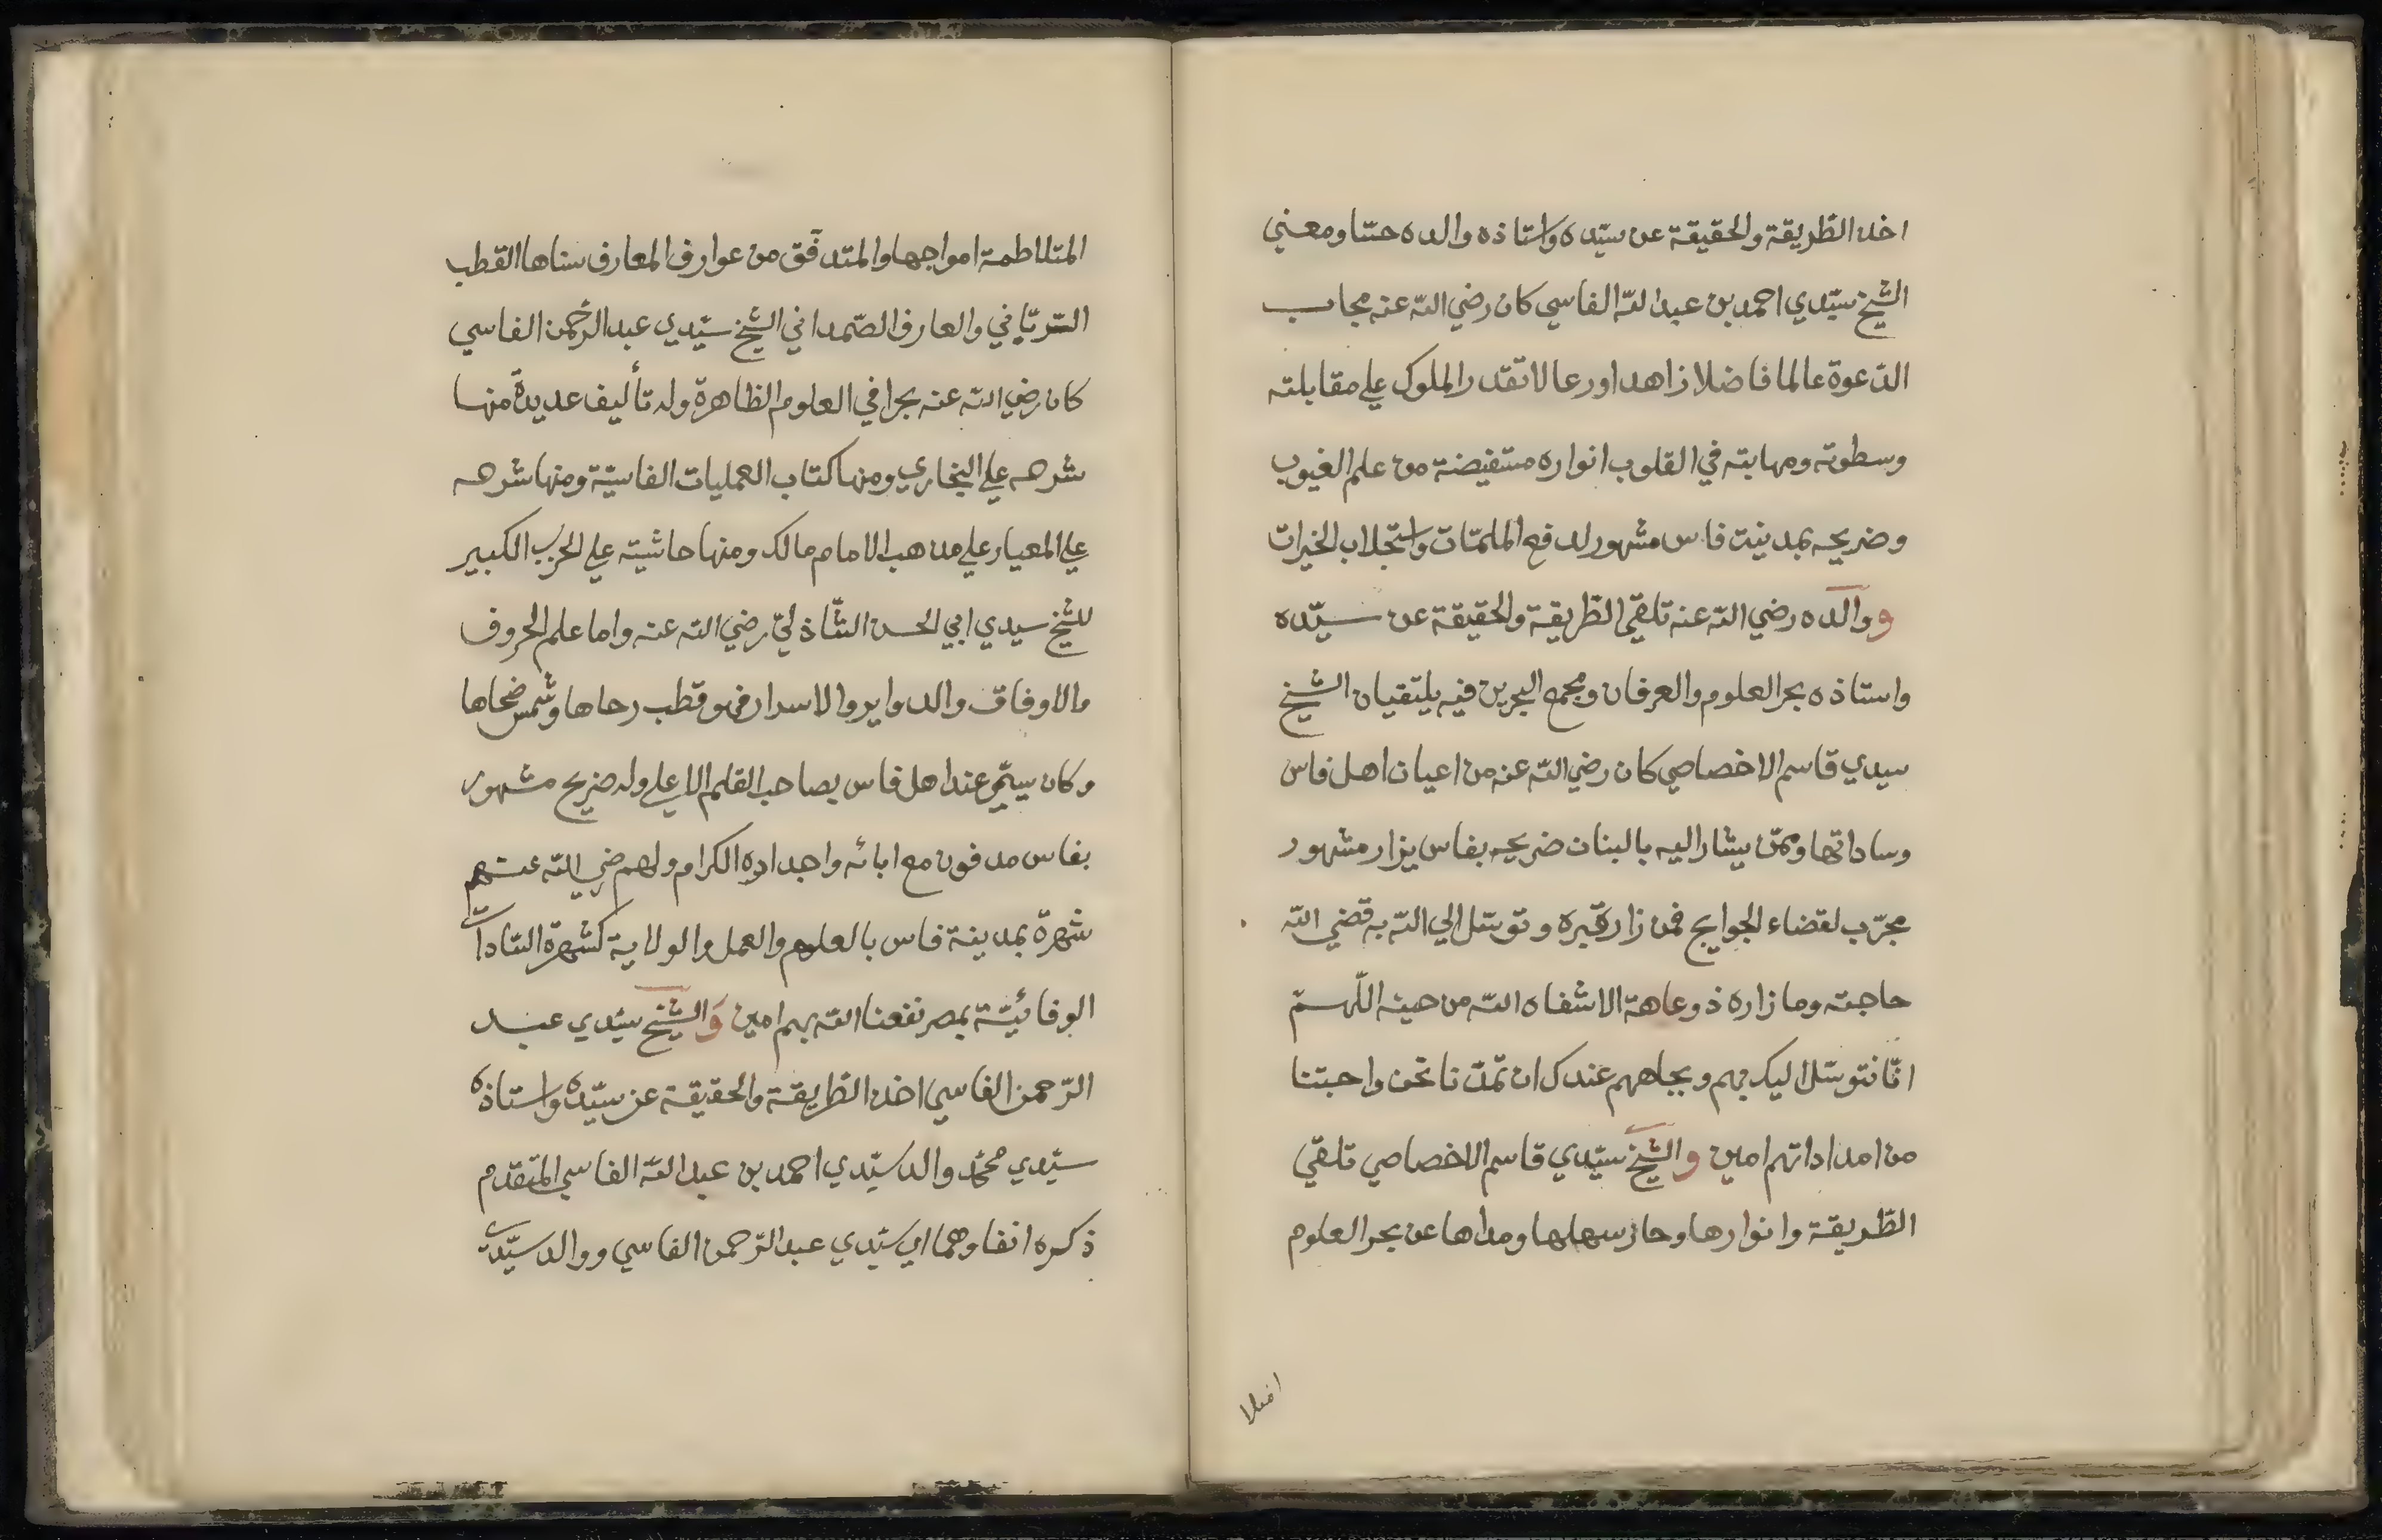 اخذ الطّريقة والحقيقة عن سيّده واستاذه والده حسّا ومعني
الشيخ سيّدي احمد بن عبد اللّه الفاسي كان رضي اللّه عنه مجاب
الدّعوة عالما فاضلا زاهدا ورعا لا تقدر الملوك علي مقابلته
وسطوته ومهابته في القلوب انواره مستفيضة من علم الغيوب
وضريحه بمدينت فاس مشهور لدفع الملمّات واستجلاب الخيرات
ووالده رضي اللّه عنه تلقّي الطّريقة والحقيقة عن سيّده
واستاذه بحر العلوم والعرفان ومجمع البحرين فيه يلتقيان الشيخ
سيدي قاسم الاخصاصي كان رضي اللّه عنه من اعيان اهل فاس
وساداتها وممّن يشار اليه بالبنان ضريحه بفاس يزار مشهور
مجرّب لقضاء الحوايج فمن زار قبره وتوسّل الي اللّه به قضي اللّه
حاجته وما زاره ذو عاهة الا شفاه اللّه من حينه اللّهمّ
انّا نتوسّل اليك بهم وبجاههم عندك ان تمدّنا نحن واحبّتنا
من امداداتهم امين والشيخ سيّدي قاسم الاخصاصي تلقّي
الطّريقة وانوارها وحاز سهلها ومداها عن بحر العلوم
المتلاطمة امواجها والمتدفّق من عوارف المعارف سناها القطب
الرّبّاني والعارف الصّمداني الشيخ سيّدي عبد الرّحمن الفاسي
كان رضي اللّه عنه بحرا في العلوم الظاهرة وله تأليف عديدة منها
شرحه علي البخاري ومنها كتاب العمليات الفاسيّة ومنها شرحه
علي المعيار علي مذهب الامام مالك ومنها حاشيته علي الحزب الكبير
للشيخ سيدي ابي الحسن الشّاذليّ رضي اللّه عنه واما علم الحروف
والاوفاق والدواير والاسرار فهو قطب رحاها وشمس ضحاها
وكان يسمّي عند اهل فاس بصاحب القلم الاعلي وله ضريح مشهور
بفاس مدفون مع ابائه واجداده الكرام ولهم رضي اللّه عنهم
شهرة بمدينة فاس بالعلم والعمل والولاية كشهرة السّادات
الوفائيّة بمصر نفعنا اللّه بهم امين والشيخ سيّدي عبد
الرّحمن الفاسي اخذ الطّريقة والحقيقة عن سيّده واستاذه
سيّدي محمّد والد سيّدي احمد بن عبد اللّه الفاسي المتقدم
ذكره انفا وهما اي سيّدي عبد الرّحمن الفاسي ووالد سيّدي